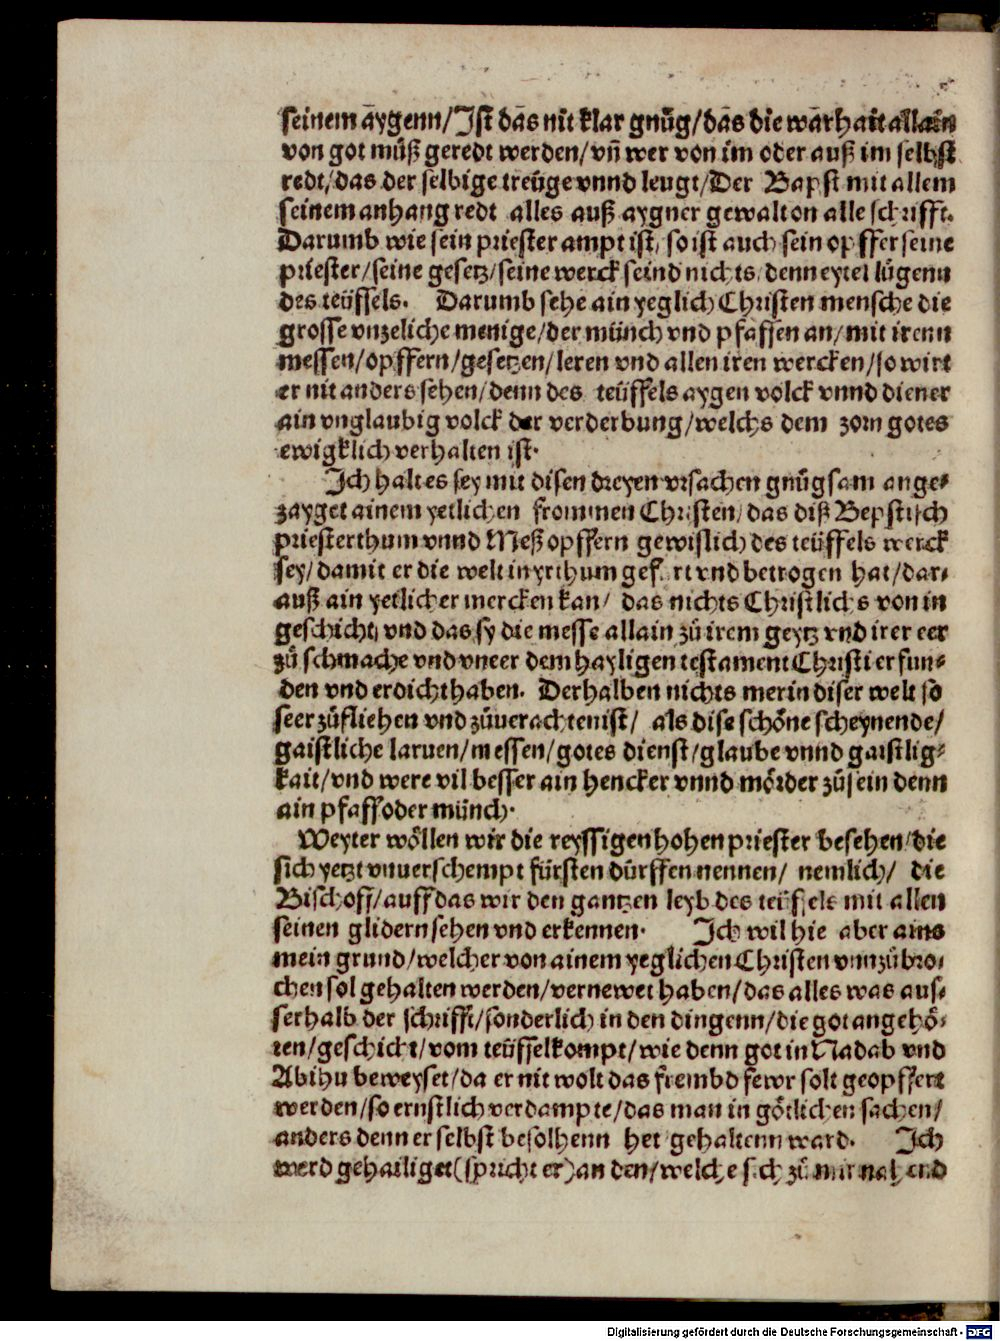 seinem aygenn/Ist das nit klar gnůg/das die warhait allain
von got můß geredt werden/vñ wer von im oder auß im selbst
redt/das der selbige treüge vnnd leugt/Der Bapst mit allem
seinem anhang redt alles auß aygner gewalt on alle schrifft.
Darumb wie sein priester ampt ist/so ist auch sein opffer seine
priester/seine gesetz/seine werck seind nichts denn eytel lügenn
des teüffels. Darumb sehe ain yeglich Christen mensche die
grosse vnzeliche menige/der münch vnd pfaffen an/mit irenn
messen/opffern/gesetzen/leren vnd allen iren wercken/so wirt
er nit anders sehen/denn des teüffels aygen volck vnnd diener
ain vnglaubig volck der verderbung/welchs dem zorn gotes
ewigklich verhalten ist.
Ich halt es sey mit disen dreyen vrsachen gnůgsam ange⸗
zayget ainem yetlichen frommen Christen/das diß Bepstisch
priesterthum vnnd Meß opffern gewislich des teüffels werck
sey/damit er die welt in yrthum gefürt vnd betrogen hat/dar⸗
auß ain yetlicher mercken kan/ das nichts Christlichs von in
geschicht/vnd das sy die messe allain zů irem geytz vnd irer eer
zů schmache vnd vneer dem hayligen testament Christi erfun⸗
den vnd erdicht haben. Derhalben nichts mer in diser welt so
seer zůfliehen vnd zůuerachten ist/ als dise schöne scheynende/
gaistliche laruen/messen/gotes dienst/glaube vnnd gaistlig⸗
kait/vnd were vil besser ain hencker vnnd mörder zůsein denn
ain pfaff oder münch.
Weyter wöllen wir die reyssigen hohen priester besehen/die
sich yetzt vnuerschempt fürsten dürffen nennen/ nemlich/ die
Bischoff/auff das wir den gantzen leyb des teüffels mit allen
seinen glidern sehen vnd erkennen. Ich wil hie aber ains
mein grund/welcher von ainem yeglichen Christen vnnzůbro⸗
chen sol gehalten werden/vernewet haben/das alles was aus⸗
serhalb der schrifft/sonderlich in den dingenn/die got angehö⸗
ren/geschicht/vom teüffel kompt/wie denn got in Nadab vnd
Abihu beweyset/da er nit wolt das frembd fewr solt geopffert
werden/so ernstlich verdampte/das man in götlichen sachen/
anders denn er selbst befolhenn het gehaltenn ward. Ich
werd gehailiget(spricht er)an den/welche sich zů mir nahend
Digitalisierung gefördert durch die Deutsche Forschungsgemeinschaft - DFG